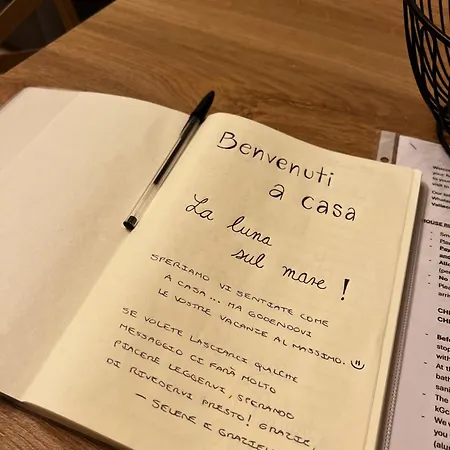 Benvenuti
a casa
La luna
sul mare!
SPERIAMO VI SENTIATE COME
A CASA... MA GODENDOVI
LE VOSTRE VACANZE AL MASSIMO. ☺
SE VOLETE LASCIARCI QUALCHE
MESSAGGIO CI FARÀ MOLTO
PIACERE LEGGERVI, SPERANDO
DI RIVEDERVI PRESTO! GRAZIE,
— SELENE I GRAZIE
HOUSE
- No
- Plea
arri
CHE
CHE
- Befo
stop
with
- At th
bath
sani
- The
kGc
- We v
you
(alu